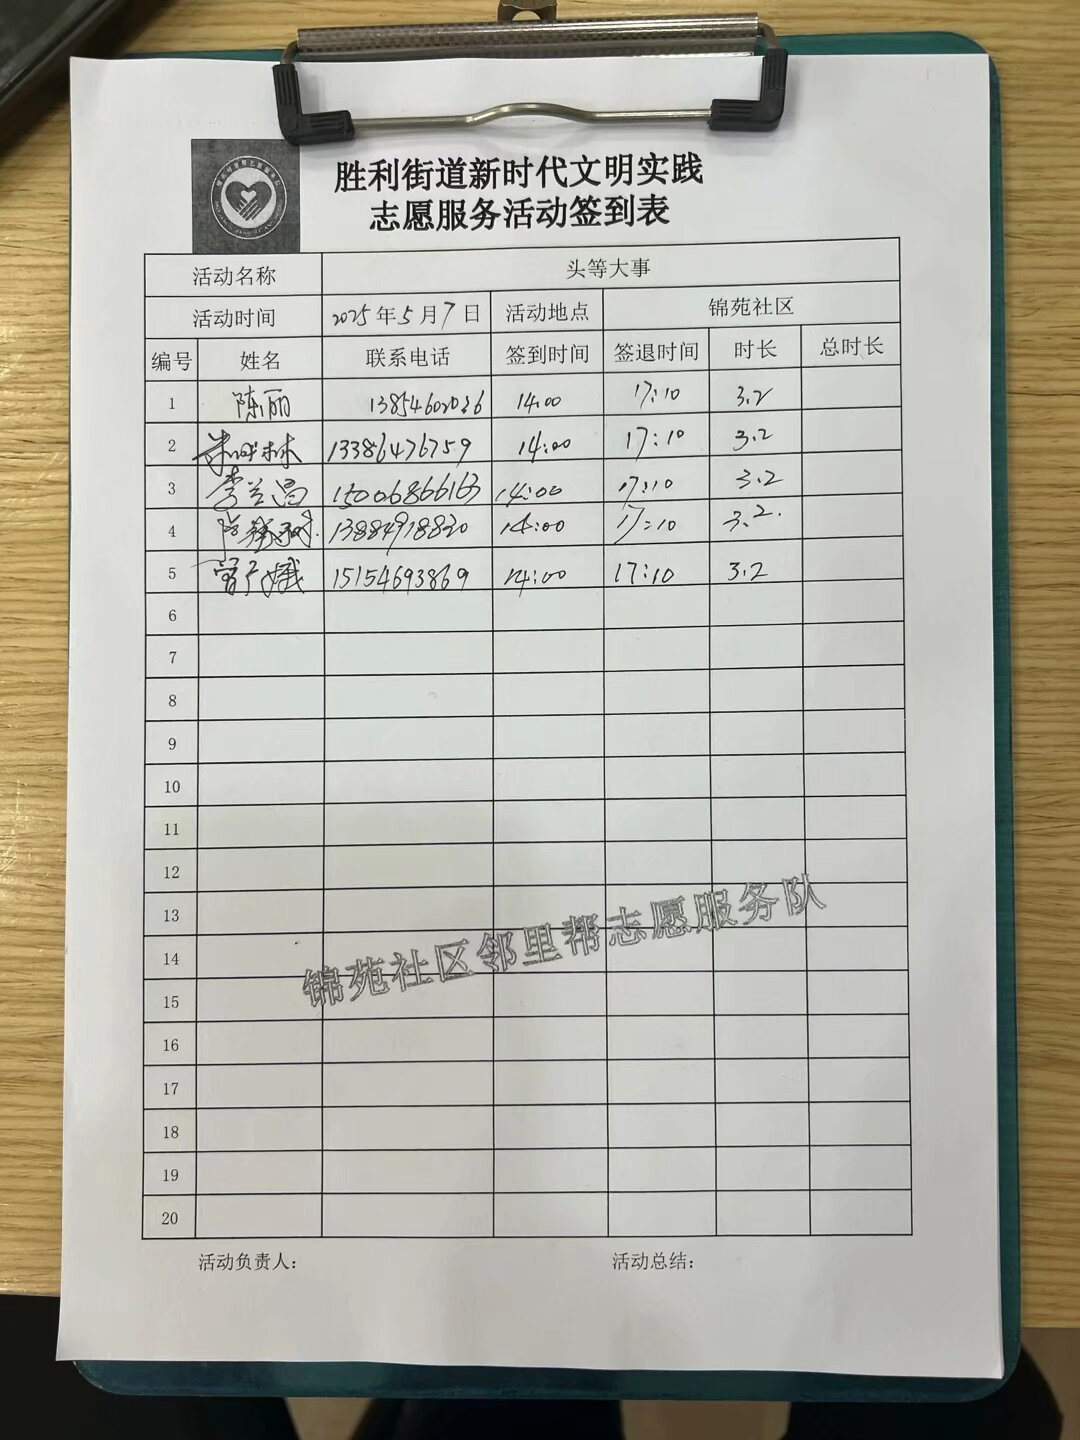 胜利街道新时代文明实践
志愿服务活动签到表
活动名称 头等大事
活动时间 2025年5月7日 活动地点 锦苑社区
编号 姓名 联系电话 签到时间 签退时间 时长 总时长
1 陈丽 13854602026 14:00 17:10 3.2
2 林 13386476759 14:00 17:10 3.2
3 李兰昌 15006866163 14:00 17:10 3.2
4 13884918820 14:00 17:10 3.2.
5 曾广娥 15154693869 14:00 17:10 3.2
6
7
8
9
10
11
12
13
14
15
16
17
18
19
20
锦苑社区邻里帮志愿服务队
活动负责人： 活动总结：